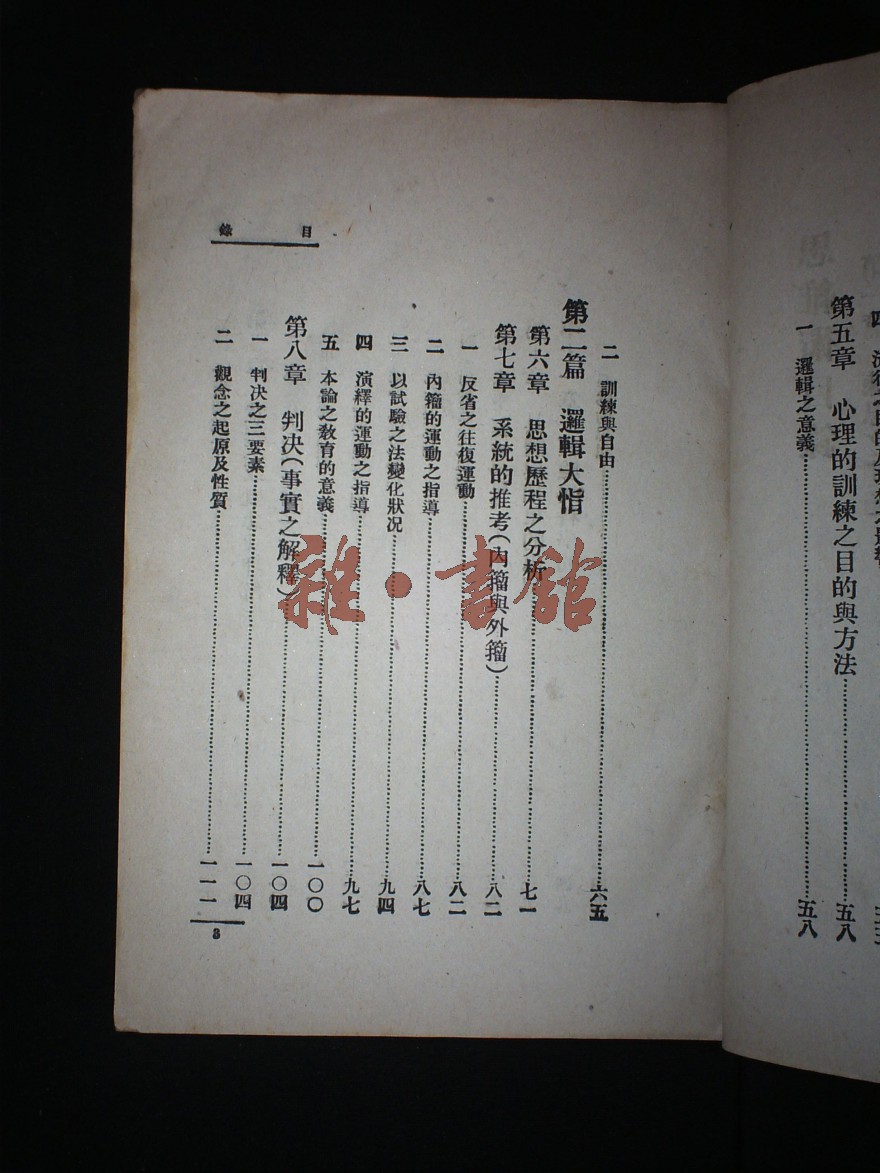 第五章　心理的訓練之目的與方法……五八
一　邏輯之意義……五八
目錄
二　訓練與自由……六五
第二篇　邏輯大恉
第六章　思想歷程之分析……七一
第七章　系統的推考（內籀與外籀）……八二
一　反省之往復運動……八二
二　內籀的運動之指導……八七
三　以試驗之法變化狀况……九四
四　演繹的運動之指導……九七
五　本論之教育的意義……一〇〇
第八章　判决（事實之解釋）……一〇四
一　判决之三要素……一〇四
二　觀念之起原及性質……一一一
3
雜·書館